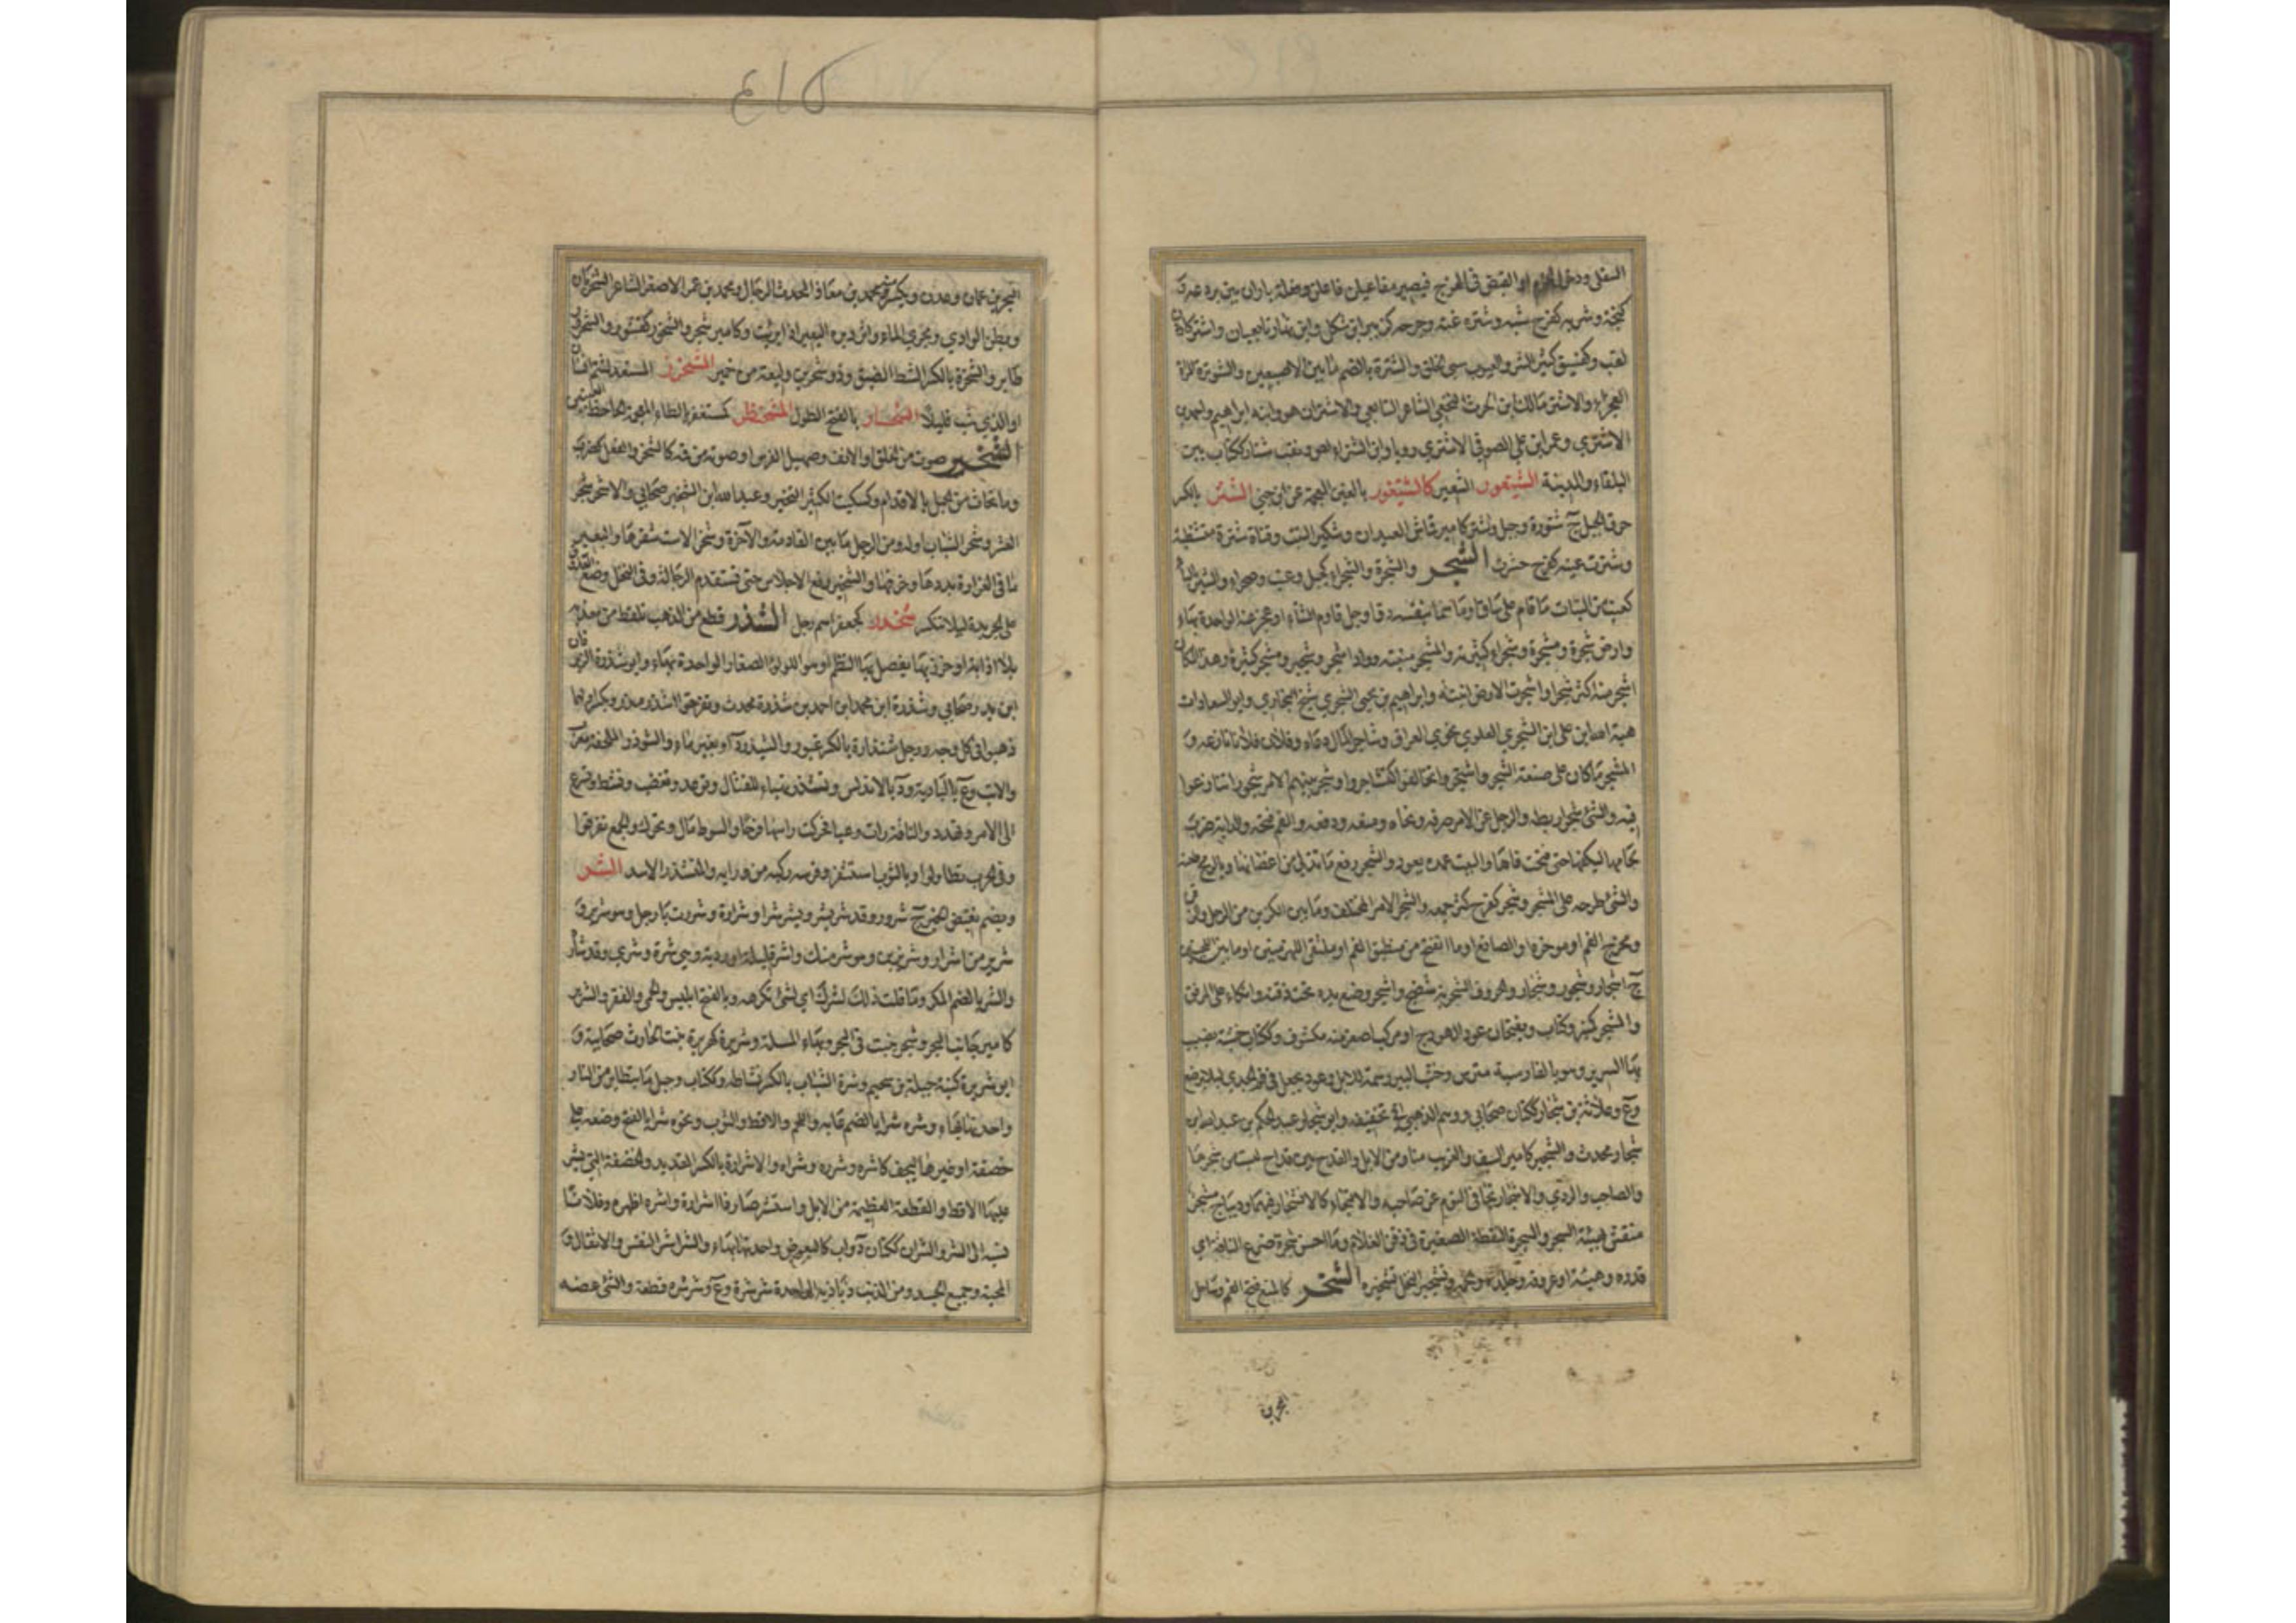 السفلى ودخول الخرم والقبض في الهزج فيصير مفاعيلن فاعلن وقلعة باران بين برذعة و
كنجة وشتر به كفرح سبه وشتره غته وجرحه وكزبير ابن شكل وابن نهار تابعيان واشتر كاردن
لقب وكفسيق كثير الشر والعيوب سيئ الخلق والشترة بالضم ما بين الاصبعين والشوترة المراة
العجزاء والاشتر مالك ابن الحرث النخعي الشاعر التابعي والاشتران هو وابنه ابراهيم واحمد
الاشتري وعمر ابن علي الصوفي الاشتري رويا وابن الشتراء لص ونقب شتار ككتاب بين
البلقاء والمدينة الشيتعور الشعير كالشيتغور بالغين المعجمة عن ابن جني الشثر بالكسر
حرف الجبل ج شثورة وجبل وشثر كامير قماش العيدان وشكير النبت وقناة شثرة متشظية
وشثرت عينه كفرح خثرت الشجر والشجرة والشجراء كجبل وعنب وصحراء والشير بالياء
كعنب من النبات ما قام على ساق او ما سما بنفسه دق او جل قاوم الشتاء او عجز عنه الواحدة بهاء
وارض شجرة ومشجرة وشجراء كثيرته والمشجر منبته وواد اشجر وشجير ومشجر كثيره وهذا المكان
اشجر منه اكثر شجرا واشجرت الارض انبتته وابراهيم بن يحيى الشجري شيخ البخاري وابو السعادات
هبة الله ابن علي ابن الشجري العلوي نحوي العراق وشاجر المال رعاه وفلان فلانا نازعه و
المشجر ما كان على صنعة الشجر واشتجروا تخالفوا كتشاجروا وشجر بينهم الامر شجورا تنازعوا
فيه والشئ شجرا ربطه والرجل عن الامر صرفه ونحاه ومنعه ودفعه والفم فتحه والدابة ضرب
لجامها ليكفها حتى فتحت فاها والبيت عمده بعمود والشجرة رفع ما تدلى من اغصانها وبالرمح طعنه
والشئ طرحه على المشجر وشجر كفرح كثر جمعه والشجر الامر المختلف وما بين الكرين من الرحل والذقن
ومخرج الفم او موخره او الصامغ او ما انفتح من منطبق الفم او ملتقى اللهزمتين او ما بين اللحيين
ج اشجار وشجور وشجار والحروف الشجرية شضج واشتجر وضع يده تحت ذقنه واتكاء على المرفق
والمشجر كمنبر وكتاب ويفتحان عود الهودج او مركب اصغر منه مكشوف وككتاب خشبة يضبب
بها السرير وهو بالفارسية مترس وخشب البير وسمة للابل وعود يجعل في فم الجدي ليلا يرضع
وع وعلاثة بن شجار ككتان صحابي ووهم الذهبي في تخفيفه وابو شجار عبد الحكم بن عبد الله ابن
شجار محدث والشجير كامير السيف والغريب منا ومن الابل والقدح بين قداح ليست من شجرها
والصاحب والردي والاشتجار تجافي النوم عن صاحبه والانجفاء كالانشجار فيهما وديباج مشجر
منقش بهيئة الشجر والشجرة النقطة الصغيرة في ذقن الغلام وما احسن شجرة ضرع الناقة اي
قدره وهيئته او عروقه وجلده ولحمه وتشجير النخل تشخيره الشحر كالمنع فتح الفم وساحل
البحرين
البحر بين عمان وعدن ويكسر منه محمد بن معاذ المحدث الرحال ومحمد بن عمر الاصغر الشاعر الشحريان
وبطن الوادي ومجرى الماء واثر دبرة البعير اذا برئت وكامير شجر والشحور كقسور والشحرور
طاير والشحرة بالكسر الشط الضيق وذو شحر بن وليعة من حمير المشحنزر المستعد لشتم انسان
او الذي شب قليلا الشحسار بالفتح الطويل المشحنظر كمستغفر بالظاء المعجمة الجاحظ العينين
الشخير صوت من الحلق او الانف وصهيل الفرس او صوته من فمه كالشخر والفعل كضرب
وما تحات من الجبل بالاقدام وكسكيت الكثير الشخير وعبد الله ابن الشخير صحابي والاشخر شجر
العشر وشخر الشباب اوله ومن الرحل ما بين القادمة والآخرة وشخر الاست شقها والبعير
ما في الغرارة بددها وخرقها والتشخير رفع الاحلاس حتى تستقدم الرحالة وفي النخل وضع العذوق
على الجريدة ليلا تنكسر شخدر كجعفر اسم رجل الشذر قطع من الذهب تلقط من معدنه
بلا اذابة او خرز يفصل بها النظم او هو اللولؤ الصغار الواحدة بهاء وابو شذرة الزبرقان
ابن بدر صحابي وشذرة ابن محمد ابن احمد بن شذرة محدث وتفرقوا شذر مذر ويكسر اولهما
ذهبوا في كل وجه ورجل شنذارة بالكسر غيور والشيذر د او بغير ماء والشوذر الملحفة معرب
والاتب وع بالبادية ود بالاندلس وتشذر تهياء للقتال وتوعد وتغضب ونشط وتسرع
الى الامر وتهدد والناقة رات رعيا فحركت راسها فرحا والسوط مال وتحرك والجمع تفرقوا
وفي الحرب تطاولوا وبالثوب استثفر وفرسه ركبه من ورايه والمتشذر الاسد الشر
ويضم نقيض الخير ج شرور وقد شر يشر ويشر شرا وشرارة وشررت يا رجل وهو شرير و
شرير من اشرار وشريرين وهو شر منك واشر قليلة او ردية وهي شرة وشرى وقد شاره
والشر بالضم المكروه وما قلت ذلك لشرك اي لشئ تكرهه وبالفتح ابليس والحمى والفقر والشرير
كامير جانب البحر وشجر ينبت في البحر وبهاء المسلة وشريرة كهريرة بنت الحارث صحابية و
ابو شريرة كنية جبلة بن سحيم وشرة الشباب بالكسر نشاطه وككتاب وجبل ما يتطاير من النار
واحدتهما بهاء وشره شرا بالضم عابه واللحم والاقط والثوب ونحوه شرا بالفتح وضعه على
خصفة او غيرها ليجف كاشره وشرره وشراه والاشرارة بالكسر القديد والخصفة التي يشر
عليها الاقط والقطعة العظيمة من الابل واستشر صار ذا اشرارة واشره اظهره وفلانا
نسبه الى الشر والشران ككتان دواب كالبعوض واحدتها بهاء والشراشر النفس والاثقال و
المحبة وجميع الجسد ومن الذنب ذباذبه الواحدة شرشرة وع وشرشره قطعه والشئ عضه